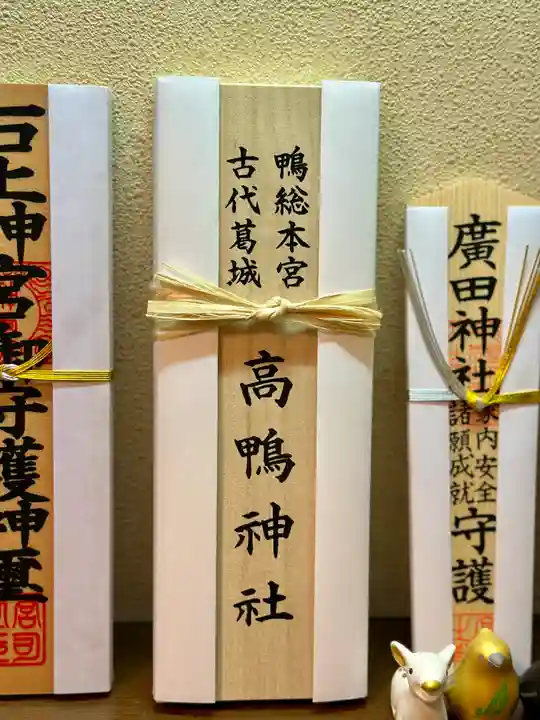 石上神宮御守護神璽
鴨総本宮
古代葛城
高鴨神社
廣田神社
家内安全
諸願成就
守護